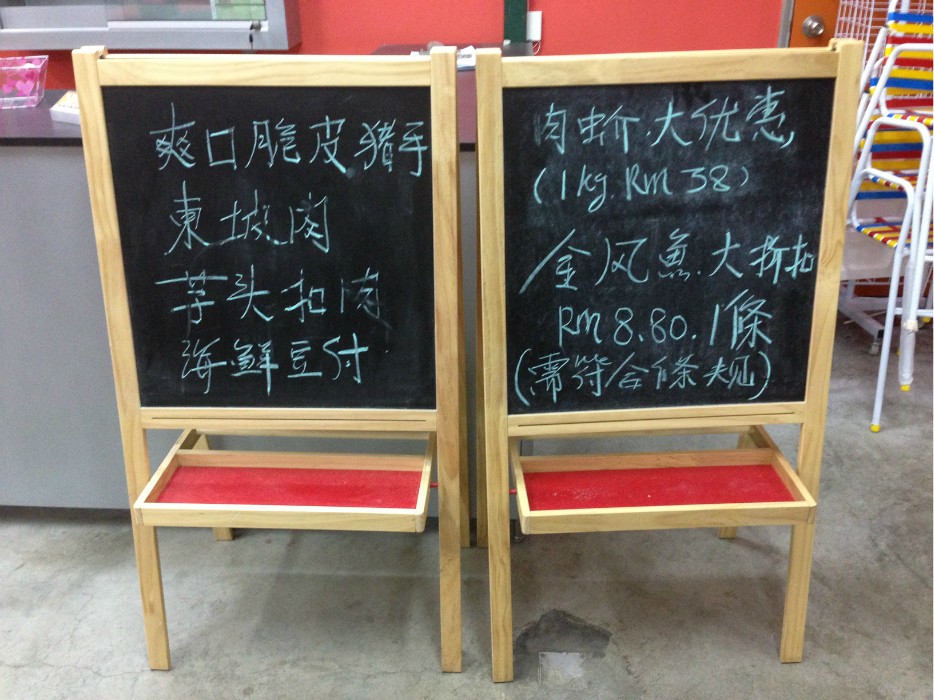 爽口脆皮猪手
東坡肉
芋头扣肉
海鮮豆付
肉蚧.大优惠
(1kg. Rm 38)
金风魚.大折扣
Rm 8.80. 1條
(需符合條规)